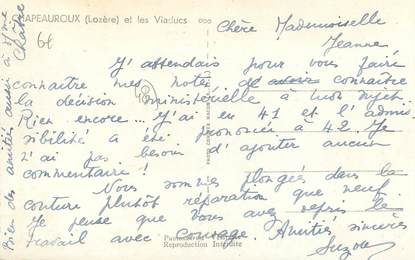 CHAPEAUROUX (Lozère) et les Viaducs
6f
Chère Mademoiselle
Jeanne
J'attendais pour vous faire
connaître mes notes de connaître
la décision ministérielle à mon sujet
Rien encore... J'ai eu 41 et l'admis
sibilité a été prononcée à 42. Je
n'ai pas besoin d'ajouter aucun
commentaire !
Nous sommes plongées dans la
couture plutôt réparation que neuf.
Je pense que vous avez repris le
travail avec Courage. Amitiés sincères
Suzon
Reproduction Interdite
Bien des amitiés aussi à Mme
Châtre